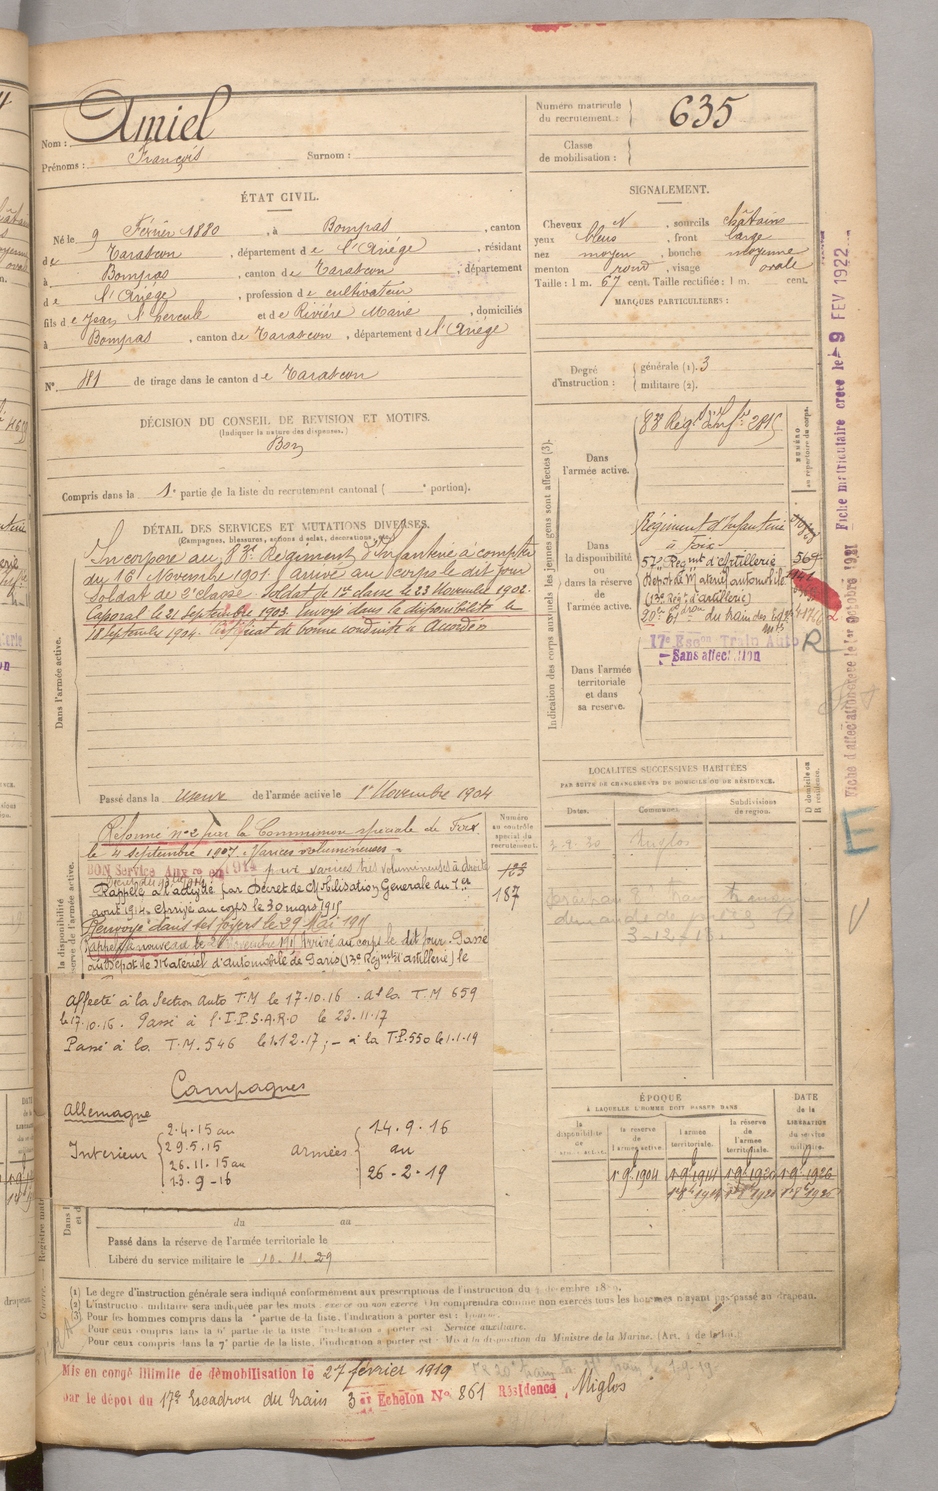 Nom : Amiel
Prénoms : François Surnom :
Numéro matricule du recrutement : 635
Classe de mobilisation :
ÉTAT CIVIL.
Né le 9 Février 1880, à Bompas, canton
de Tarascon, département de l'Ariége, résidant
à Bompas, canton de Tarascon, département
de l'Ariége, profession de cultivateur
fils de Jean N hercule et de Riviére Marie, domiciliés
à Bompas, canton de Tarascon, département de l'Ariége
N° 181 de tirage dans le canton de Tarascon
SIGNALEMENT.
Cheveux N, sourcils châtains
yeux bleus, front large
nez moyen, bouche moyenne
menton rond, visage ovale
Taille : 1 m. 67 cent. Taille rectifiée : 1 m. cent.
MARQUES PARTICULIÈRES :
Degré d'instruction : générale (1). 3
militaire (2).
DÉCISION DU CONSEIL DE REVISION ET MOTIFS.
(Indiquer la nature des dispenses.)
Bon
Compris dans la 1e partie de la liste du recrutement cantonal ( e portion).
DÉTAIL DES SERVICES ET MUTATIONS DIVERSES.
(Campagnes, blessures, actions d'éclat, décorations, etc.)
Dans l'armée active.
Incorporé au 83e Régiment d'Infanterie à compter
du 16 Novembre 1901. arrivé au corps le dit jour
Soldat de 2e classe. Soldat de 1re classe le 23 Novembre 1902.
Caporal le 21 Septembre 1903. Envoyé dans la disponibilité le
18 Septembre 1904. Certificat de bonne conduite "Accordé"
Passé dans la réserve de l'armée active le 1er Novembre 1904
Indication des corps auxquels les jeunes gens sont affectés (3).
NUMÉRO au répertoire du corps.
Dans l'armée active.
83e Régt d'Infie
Dans la disponibilité ou dans la réserve de l'armée active.
Régiment d'Infanterie
à Foix
57e Régmt d'Artillerie
Dépot de Mat automobile
(13e Régt d'artillerie)
20e Edron du train des Eq
17e Escon Train Auto R
Sans affectation
Dans l'armée territoriale et dans sa réserve.
Fiche matriculaire créée le 9 FEV 1922
Fiche d'affectation créée le 1er Octobre 1921
E
LOCALITÉS SUCCESSIVES HABITÉES
PAR SUITE DE CHANGEMENTS DE DOMICILE OU DE RÉSIDENCE.
Dates. Communes. Subdivisions de région. D domicile ou R résidence.
Miglos
demande de
3-12-18
Numéro au contrôle spécial du recrutement.
123
187
Réformé n° 2 par la Commission spéciale de Foix
le 4 septembre 1907. Varices volumineuses.
BON Service Auxre en 1914 pour varices très volumineuses à droite
Rappelé à l'activité par Décret de Mobilisation Générale du 1er
aout 1914. Arrivé au corps le 30 mars 1915
Renvoyé dans ses foyers le 29 Mai 1915
Rappelé à nouveau le Novembre 1915 Arrivé au corps le dit jour. Passé
au Dépot de Matériel d'automobile de Paris (13e Régmt d'artillerie) le
Affecté à la Section Auto T.M le 17.10.16. A la T.M 659
le 17.10.16. Passé à l'I.P.S.A.R.O le 23.11.17
Passé à la T.M. 546 le 1.12.17 ; – à la T.P. 550 le 1.1.19
Campagnes
Allemagne
Intérieur
2.4.15 au
29.5.15
26.11.15 au
13.9-16
armées
14.9.16
au
26-2-19
du au
Passé dans la réserve de l'armée territoriale le
Libéré du service militaire le 10.11.29
ÉPOQUE
À LAQUELLE L'HOMME DOIT PASSER DANS
la disponibilité de l'armée active.
la réserve de l'armée active.
l'armée territoriale.
la réserve de l'armée territoriale.
DATE de la LIBÉRATION du service militaire.
1 9bre 1904 1 9bre 1914 1 9bre 1920 1 9bre 1926
(1) Le degré d'instruction générale sera indiqué conformément aux prescriptions de l'instruction du
(2) L'instruction militaire sera indiquée par les mots : exercé ou non exercé. On comprendra comme non exercés tous les hommes n'ayant pas passé au drapeau.
(3) Pour les hommes compris dans la partie de la liste, l'indication à porter est :
Pour ceux compris dans la 6e partie de la liste, l'indication à porter est : Service auxiliaire.
Pour ceux compris dans la 7e partie de la liste, l'indication à porter est : Mis à la disposition du Ministre de la Marine.
Mis en congé illimité de démobilisation le 27 février 1919
par le dépot du 17e Escadron du train 3 Echelon No 861 Résidence, Miglos